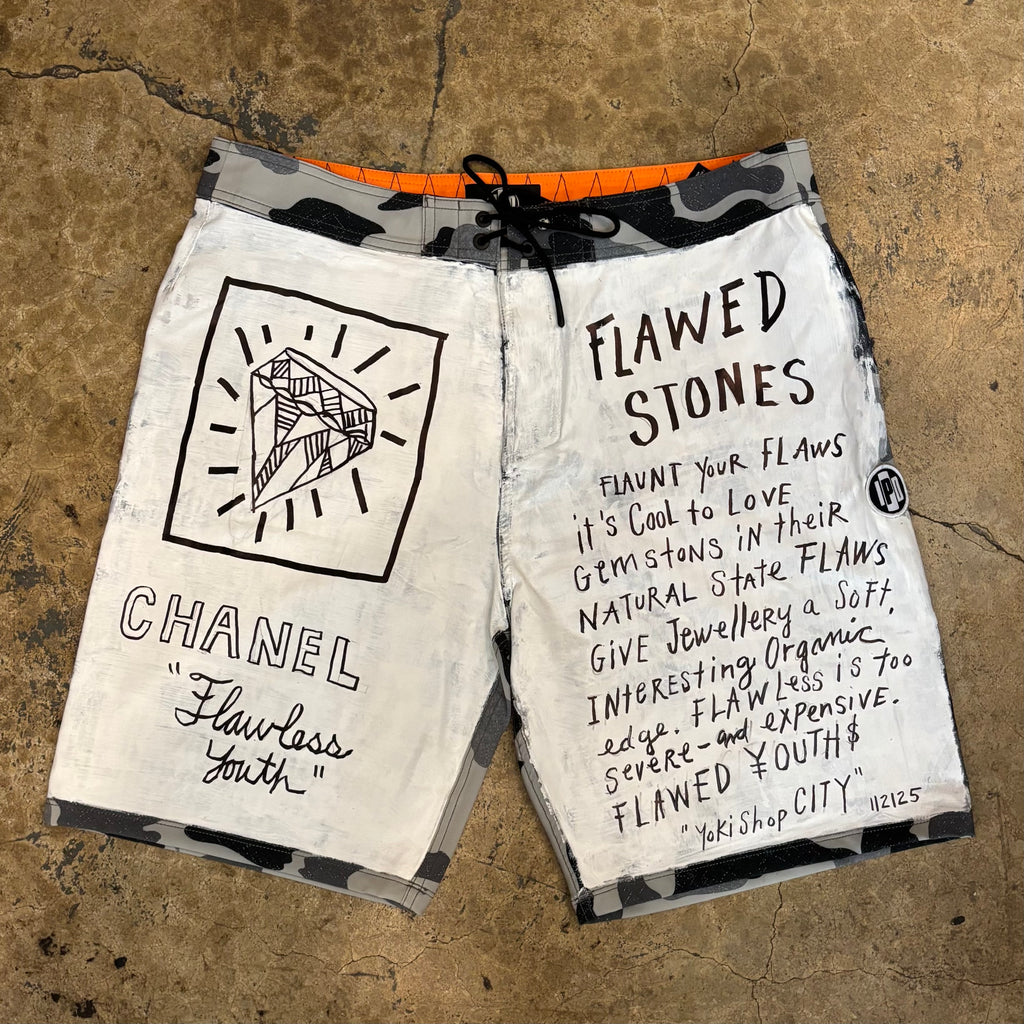 CHANEL
"Flawless
Youth"
FLAWED
STONES
FLAUNT YOUR FLAWS
it's CooL to LOVE
Gemstons iN theiR
NATURAL State FLAWS
GiVE Jewellery a SoFt,
INteRESting Organic
edge. FLAWLess is too
SeveRe-and expensive.
FLAWED ¥OUTH$
"YoKi Shop CITY" 112125
IPD